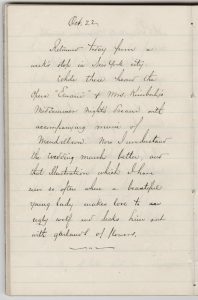 Oct. 22.
Returned today from a
week's stop in New York city.
While there heard the
Opera "Ernani" & Mrs. Kimball's
Midsummer Night's Dream with
accompanying music of
Mendelssohn. Now I understand
the wedding march better, and
that illustration which I have
seen so often where a beautiful
young lady makes love to an
ugly wolf and decks him out
with garland of flowers.